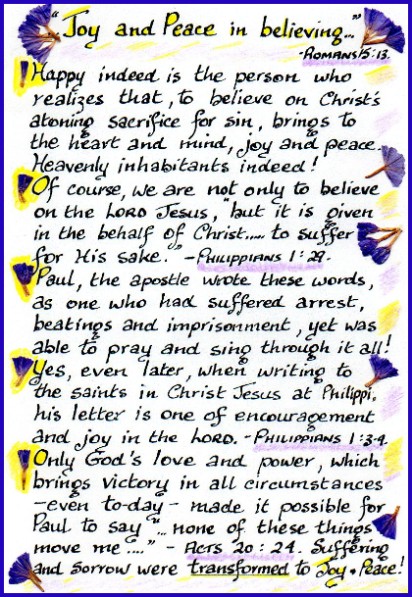 "Joy and Peace in believing..."
-ROMANS 15:13.
Happy indeed is the person who
realizes that, to believe on Christ's
atoning sacrifice for sin, brings to
the heart and mind, joy and peace.
Heavenly inhabitants indeed!
Of course, we are not only to believe
on the LORD Jesus, "but it is given
in the behalf of Christ..... to suffer
for His sake." -PHILIPPIANS 1:29.
Paul, the apostle wrote these words,
as one who had suffered arrest,
beatings and imprisonment, yet was
able to pray and sing through it all!
Yes, even later, when writing to
the saints in Christ Jesus at Philippi,
his letter is one of encouragement
and joy in the LORD. -PHILIPPIANS 1:3-4.
Only God's love and power, which
brings victory in all circumstances
-even to-day- made it possible for
Paul to say "... none of these things
move me...." - ACTS 20:24. Suffering
and sorrow were transformed to Joy & Peace!